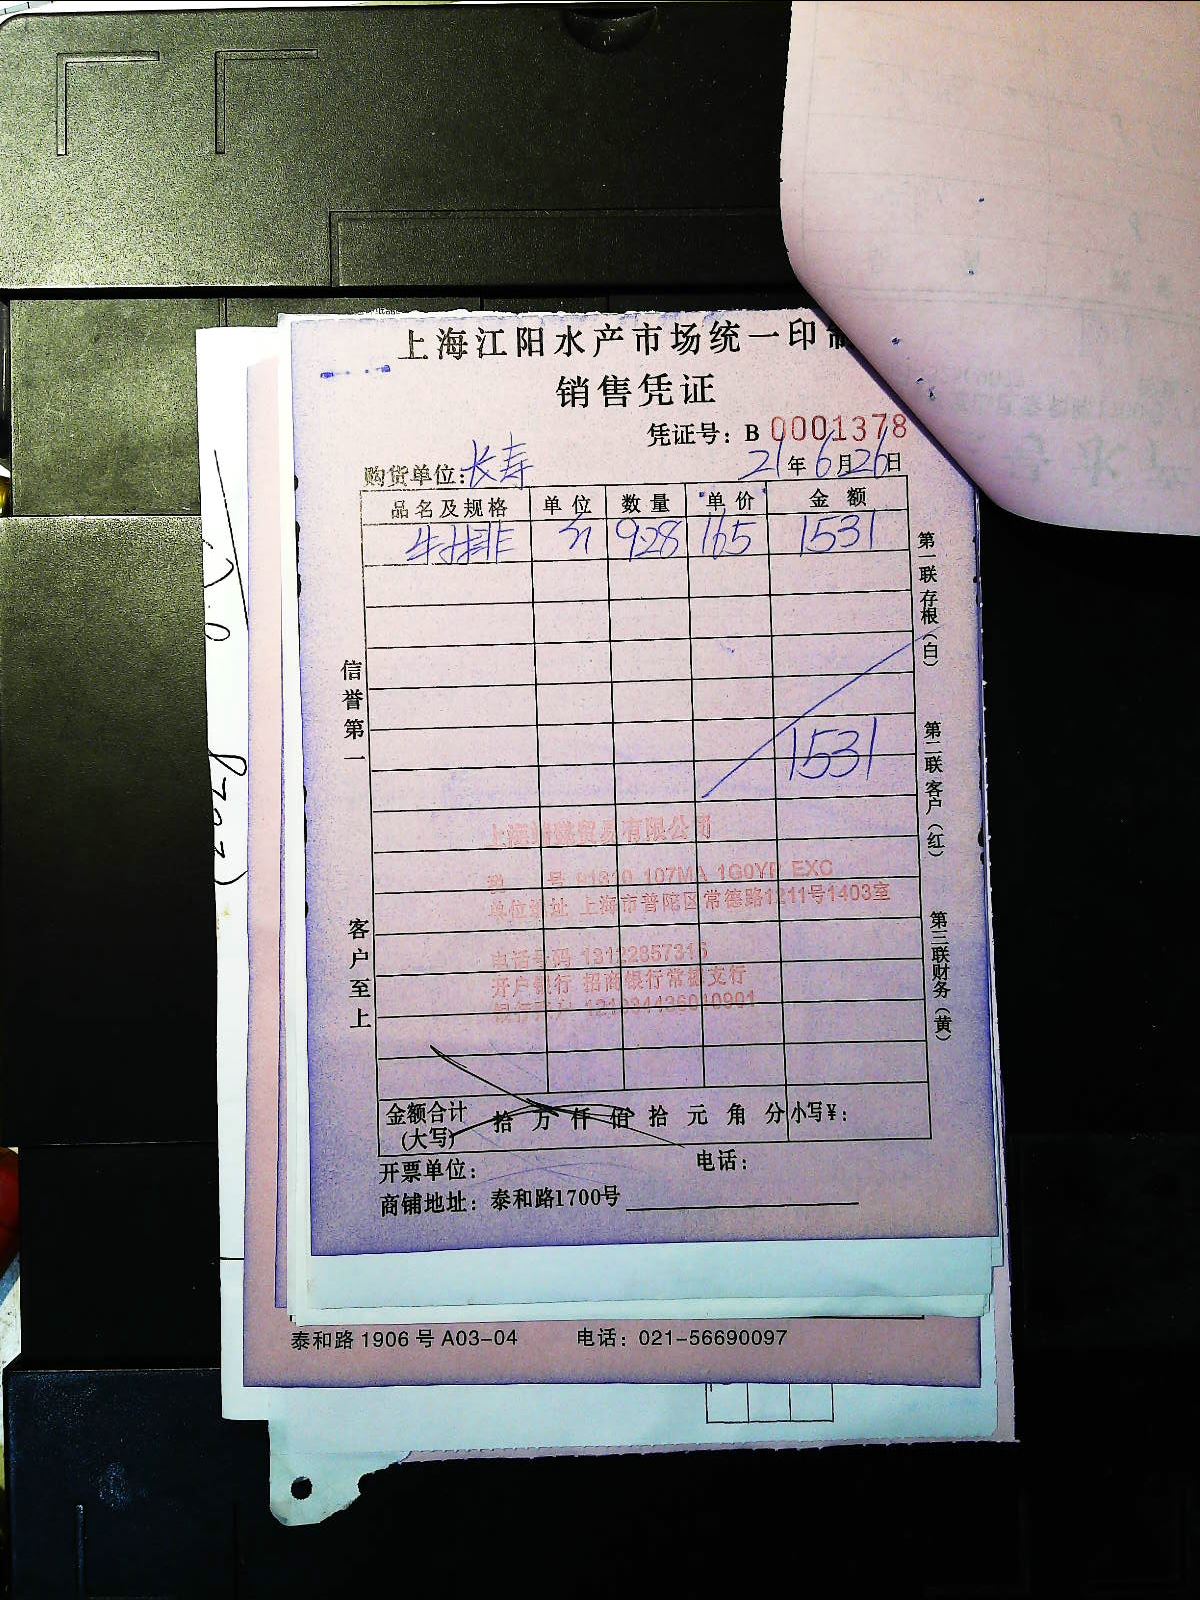 上海江阳水产市场统一印制
销售凭证
凭证号：B 0001378
购货单位：长寿 21年6月26日
品名及规格 单位 数量 单价 金额
牛排 928 165 1531
1531
信誉第一
客户至上
第一联存根（白）
第二联客户（红）
第三联财务（黄）
贸易有限公司
号
单位地址 上海市普陀区常德路1211号1403室
电话号码
开户银行 招商银行常德支行
金额合计（大写） 拾 万 仟 佰 拾 元 角 分 小写￥：
开票单位： 电话：
商铺地址：泰和路1700号
泰和路 1906 号 A03-04 电话：021-56690097